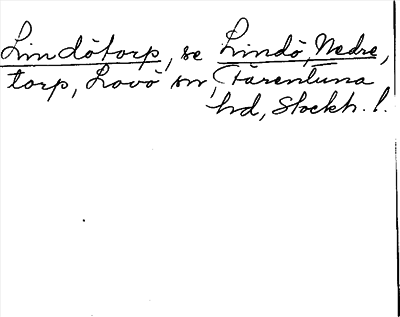 Lindötorp, se Lindö, Nedre,
torp, Lovö sn, Färentuna
hd, Stockh. l.